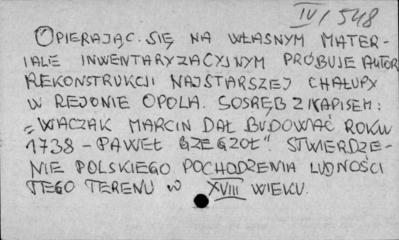 IV/548
OPIERAJĄC SIĘ NA WŁASNYM MATER-
IALE INWENTARYZACYJNYM PRÓBUJE AUTOR
REKONSTRUKCJI NAJSTARSZEJ CHAŁUPY
W REJONIE OPOLA. SOSRĘB Z NAPISEM:
"WACZAK MARCIN DAŁ BUDOWAĆ ROKU
1738 - PAWEŁ BZEGZOŁ". STWIERDZE-
NIE POLSKIEGO POCHODZENIA LUDNOŚCI
TEGO TERENU W XVIII WIEKU.